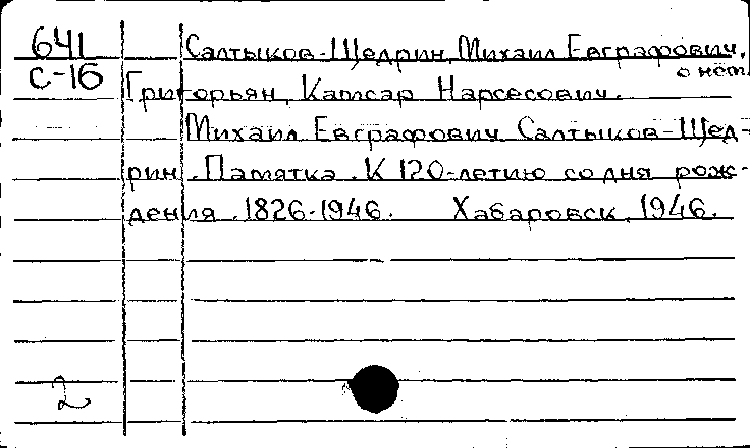 641 Салтыков-Щедрин, Михаил Евграфович,
о нем.
С-16 Григорьян, Катсар Нарсесович.
Михаил Евграфович Салтыков-Щед-
рин. Памятка. К 120-летию со дня рож-
дения. 1826-1946. Хабаровск, 1946.
2